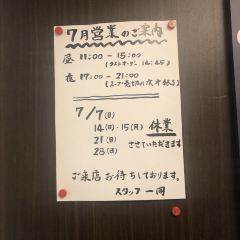 7月営業のご案内
昼 11:00-15:00
(ラストオーダー 14:45)
夜 17:00-21:00
(スープ売切れ次第終了)
7/7(日)
14(日)・15(月) 休業
21(日) させていただきます
28(日)
ご来店お待ちしております。
スタッフ一同